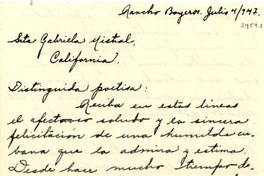 Rancho Boyeros. Julio 4/947.
Sta Gabriela Mistral.
California.
Distinguida poetisa:
Reciba en estas lineas
el efectuoso saludo y la sincera
felicitación de una humilde cu-
bana que la admira y estima.
Desde hace mucho tiempo de-